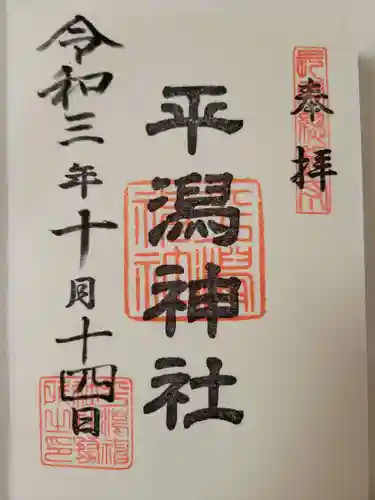 奉拝
平潟神社
令和三年十月十四日